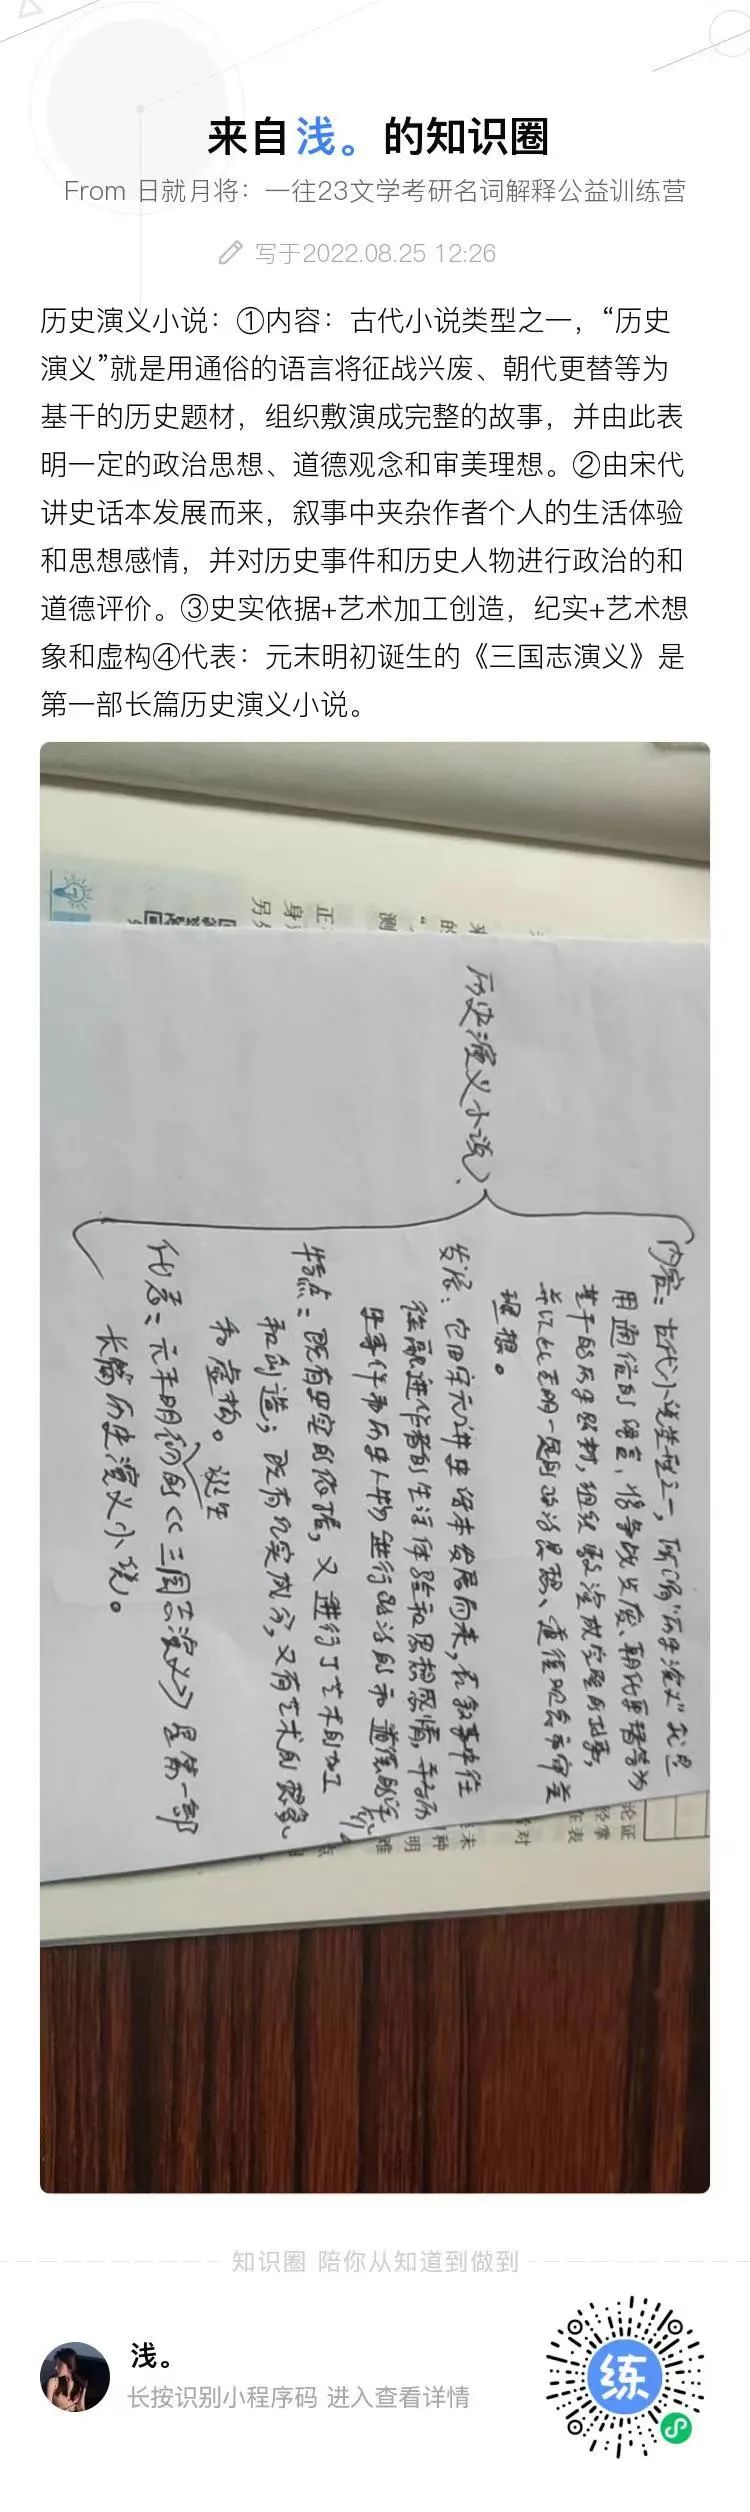 来自浅。的知识圈
From 日就月将：一往23文学考研名词解释公益训练营
写于2022.08.25 12:26
历史演义小说：①内容：古代小说类型之一，“历史
演义”就是用通俗的语言将征战兴废、朝代更替等为
基干的历史题材，组织敷演成完整的故事，并由此表
明一定的政治思想、道德观念和审美理想。②由宋代
讲史话本发展而来，叙事中夹杂作者个人的生活体验
和思想感情，并对历史事件和历史人物进行政治的和
道德评价。③史实依据+艺术加工创造，纪实+艺术想
象和虚构④代表：元末明初诞生的《三国志演义》是
第一部长篇历史演义小说。
历史演义小说
内容：古代小说类型之一，所谓“历史演义”就是
用通俗的语言，将争战兴废、朝代更替等为
基干的历史题材，组织敷演成完整的故事，
并以此表明一定的政治思想、道德观念和审美
理想。
发展：它由宋元讲史话本发展而来，在叙事中往
往融进作者的生活体验和思想感情，并对历
史事件和历史人物进行政治的和道德的评
价。
特点：既有史实的依据，又进行了艺术的加工
和创造；既有纪实成分，又有艺术的想象
和虚构。
诞生
代表：元末明初的《三国志演义》是第一部
长篇历史演义小说。
知识圈 陪你从知道到做到
浅。
长按识别小程序码 进入查看详情
练